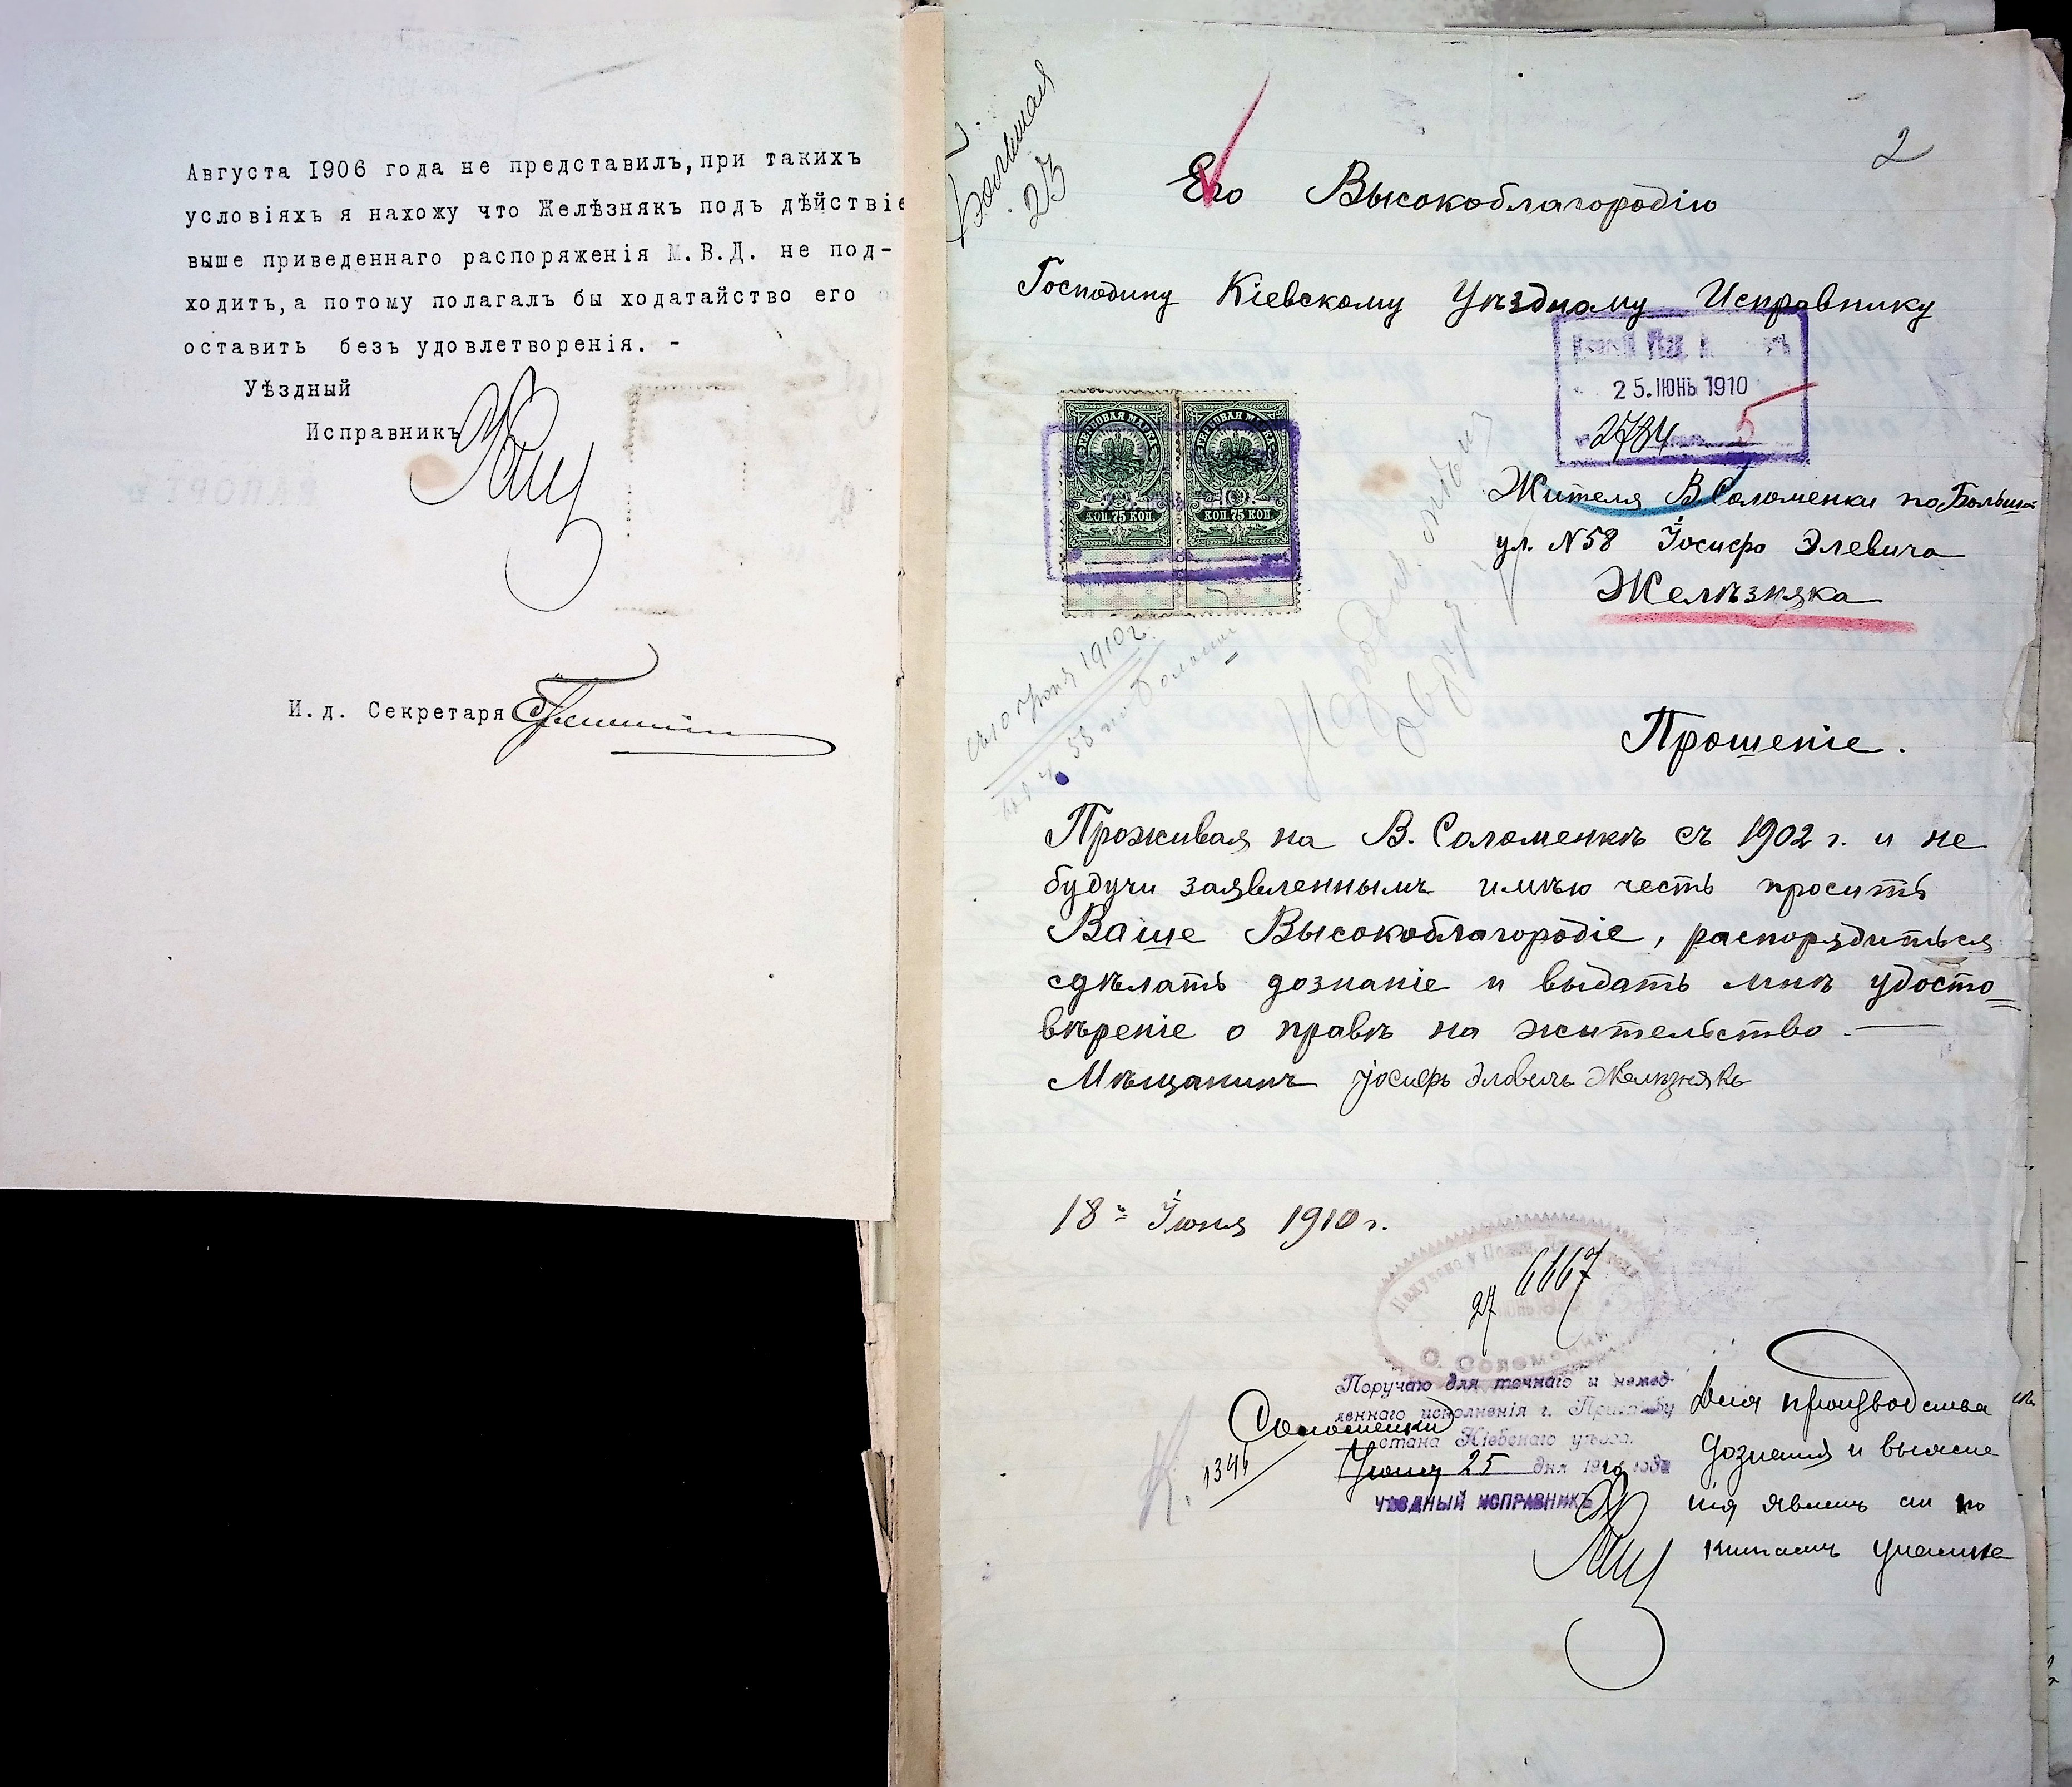 Августа 1906 года не представилъ,при такихъ
условіяхъ я нахожу что Желѣзнякъ подъ дѣйствіе
выше приведеннаго распоряженія М.В.Д. не под-
ходитъ,а потому полагалъ бы ходатайство его
оставить безъ удовлетворенія. -
Уѣздный
Исправникъ
И.д. Секретаря
Большая
23
2
Его Высокоблагородію
Господину Кіевскому Уѣздному Исправнику
25.ІЮНЬ 1910
2784
5
ГЕРБОВАЯ МАРКА ГЕРБОВАЯ МАРКА
КОП. 75 КОП. КОП. 75 КОП.
Жителя В Соломенки по Больш
ул. N58 Іосифа Элевича
Желѣзняка
съ 10 Іюня 1910г.
58 по Больш
Прошеніе.
Проживая на В. Соломенкѣ съ 1902 г. и не
будучи заявленнымъ имѣю честь просить
Ваше Высокоблагородіе, распорядиться
сдѣлать дознаніе и выдать мнѣ удосто=
вѣреніе о правѣ на жительство.
Мѣщанинъ Іосифъ Эловичъ Желѣзнякъ
18 Іюня 1910 г.
6667
27
Поручаю для точнаго и немед-
леннаго исполненія г. Приставу
Соломенки
стана Кіевскаго уѣзда.
Іюня 25 дня 1910 года
УѢЗДНЫЙ ИСПРАВНИКЪ
К. 1341
Для производства
дознанія и выясне
нія